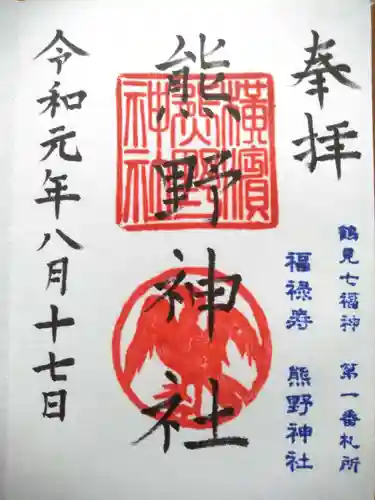 奉拝
鶴見七福神 第一番札所
福禄寿 熊野神社
熊野神社
横濱熊野神社
令和元年八月十七日